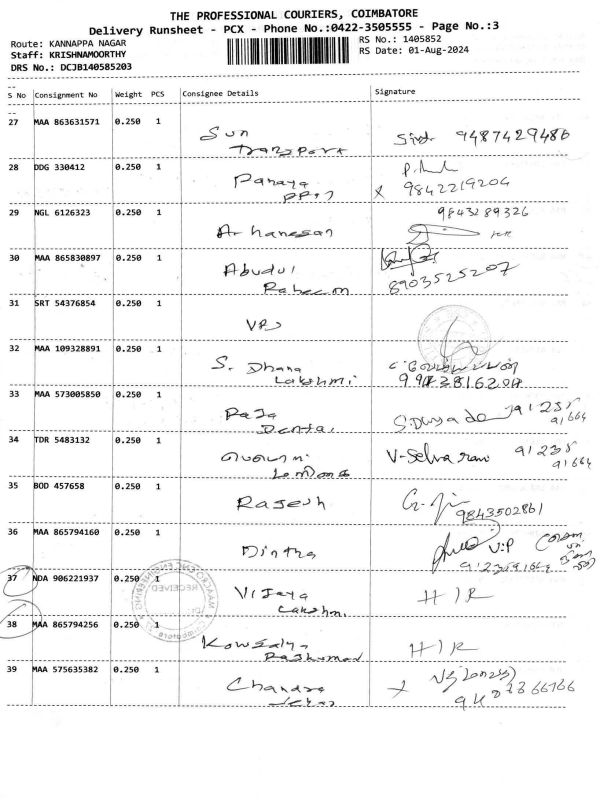 THE PROFESSIONAL COURIERS, COIMBATORE
Delivery Runsheet - PCX - Phone No.:0422-3505555 - Page No.:3
Route: KANNAPPA NAGAR
Staff: KRISHNAMOORTHY
DRS No.: DCJB140585203
RS No.: 1405852
RS Date: 01-Aug-2024
S No Consignment No Weight PCS Consignee Details Signature
27 MAA 863631571 0.250 1
Sun 9487429486
Transport
28 DDG 330412 0.250 1
Panaya
x 9842219204
29 NGL 6126323 0.250 1
9843289326
Arhanesan
30 MAA 865830897 0.250 1
Abudul
Raheem 8903525207
31 SRT 54376854 0.250 1
32 MAA 109328891 0.250 1
S. Dhana
Lakshmi
33 MAA 573005850 0.250 1
Raja 91238
Dental 91664
34 TDR 5483132 0.250 1
V-Selva rani 91238
91664
35 BOD 457658 0.250 1
Rajesh
9843502861
36 MAA 865794160 0.250 1
Dintha V.P
37 NDA 906221937 0.250 1
RECEIVED
Vijaya H/R
Lakshmi
38 MAA 865794256 0.250 1
Kowsalya H/R
Rajkumar
39 MAA 575635382 0.250 1
Chandra x
Sekar